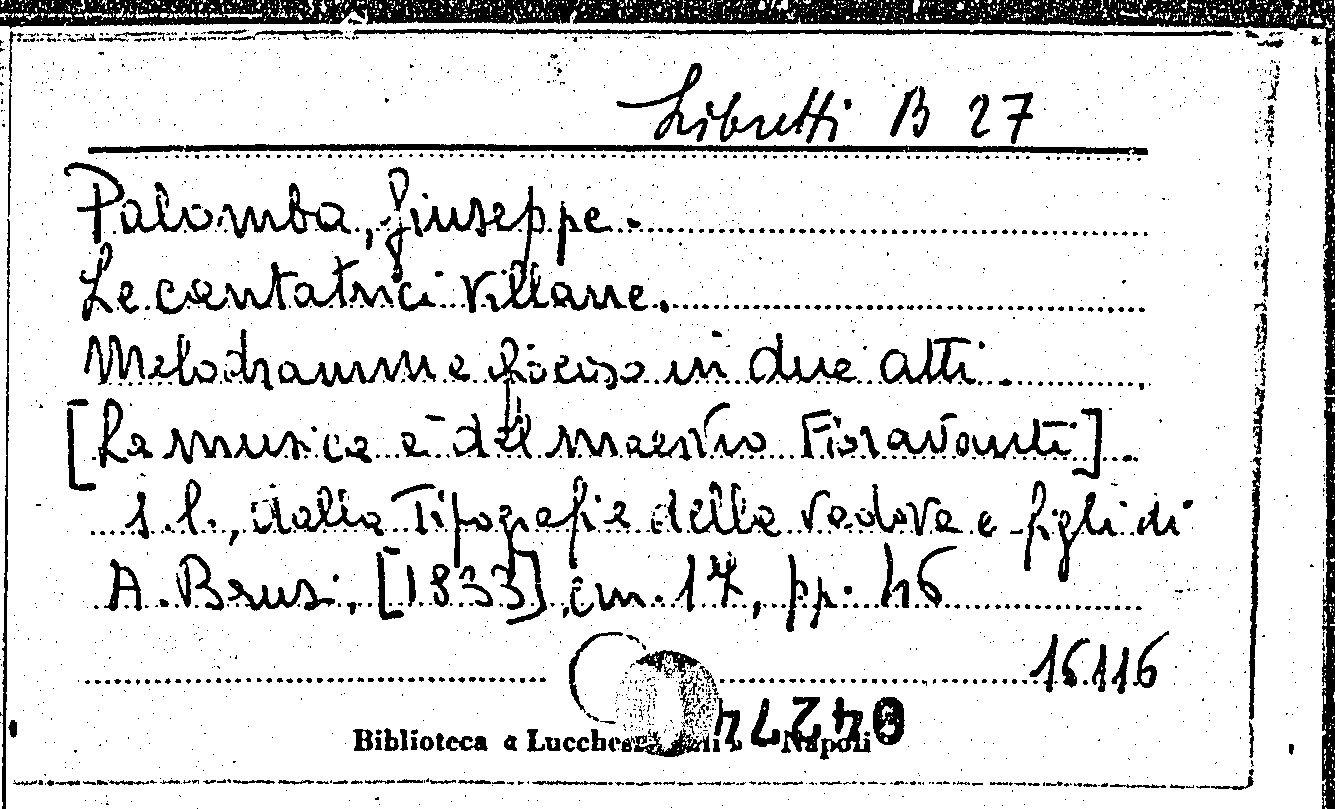 Libretti B 27
Palomba, Giuseppe.
Le cantatrici villane.
Melodramma giocoso in due atti.
[La musica è del maestro Fioravanti].
s.l., dalla Tipografia della vedova e figli di
A. Brusi, [1833], cm. 17, pp. 46
16116
04274
Biblioteca Napoli